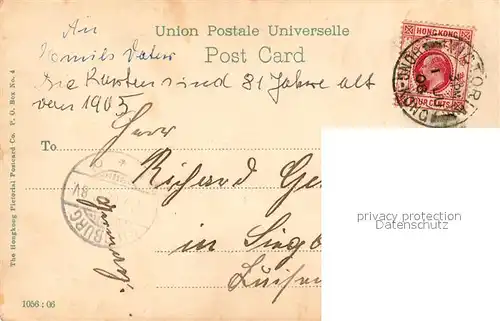 Union Postale Universelle
Post Card
An
Vater
Die Karten sind 81 Jahre alt
von 1905
HONGKONG
VICTORIA
HONG-KONG
Herrn
To
Richard Ge
in Sieg
Luisen
Germany
BURG
privacy protection
Datenschutz
The Hongkong Pictorial Postcard Co. P. O. Box No. 4
1056 : 06